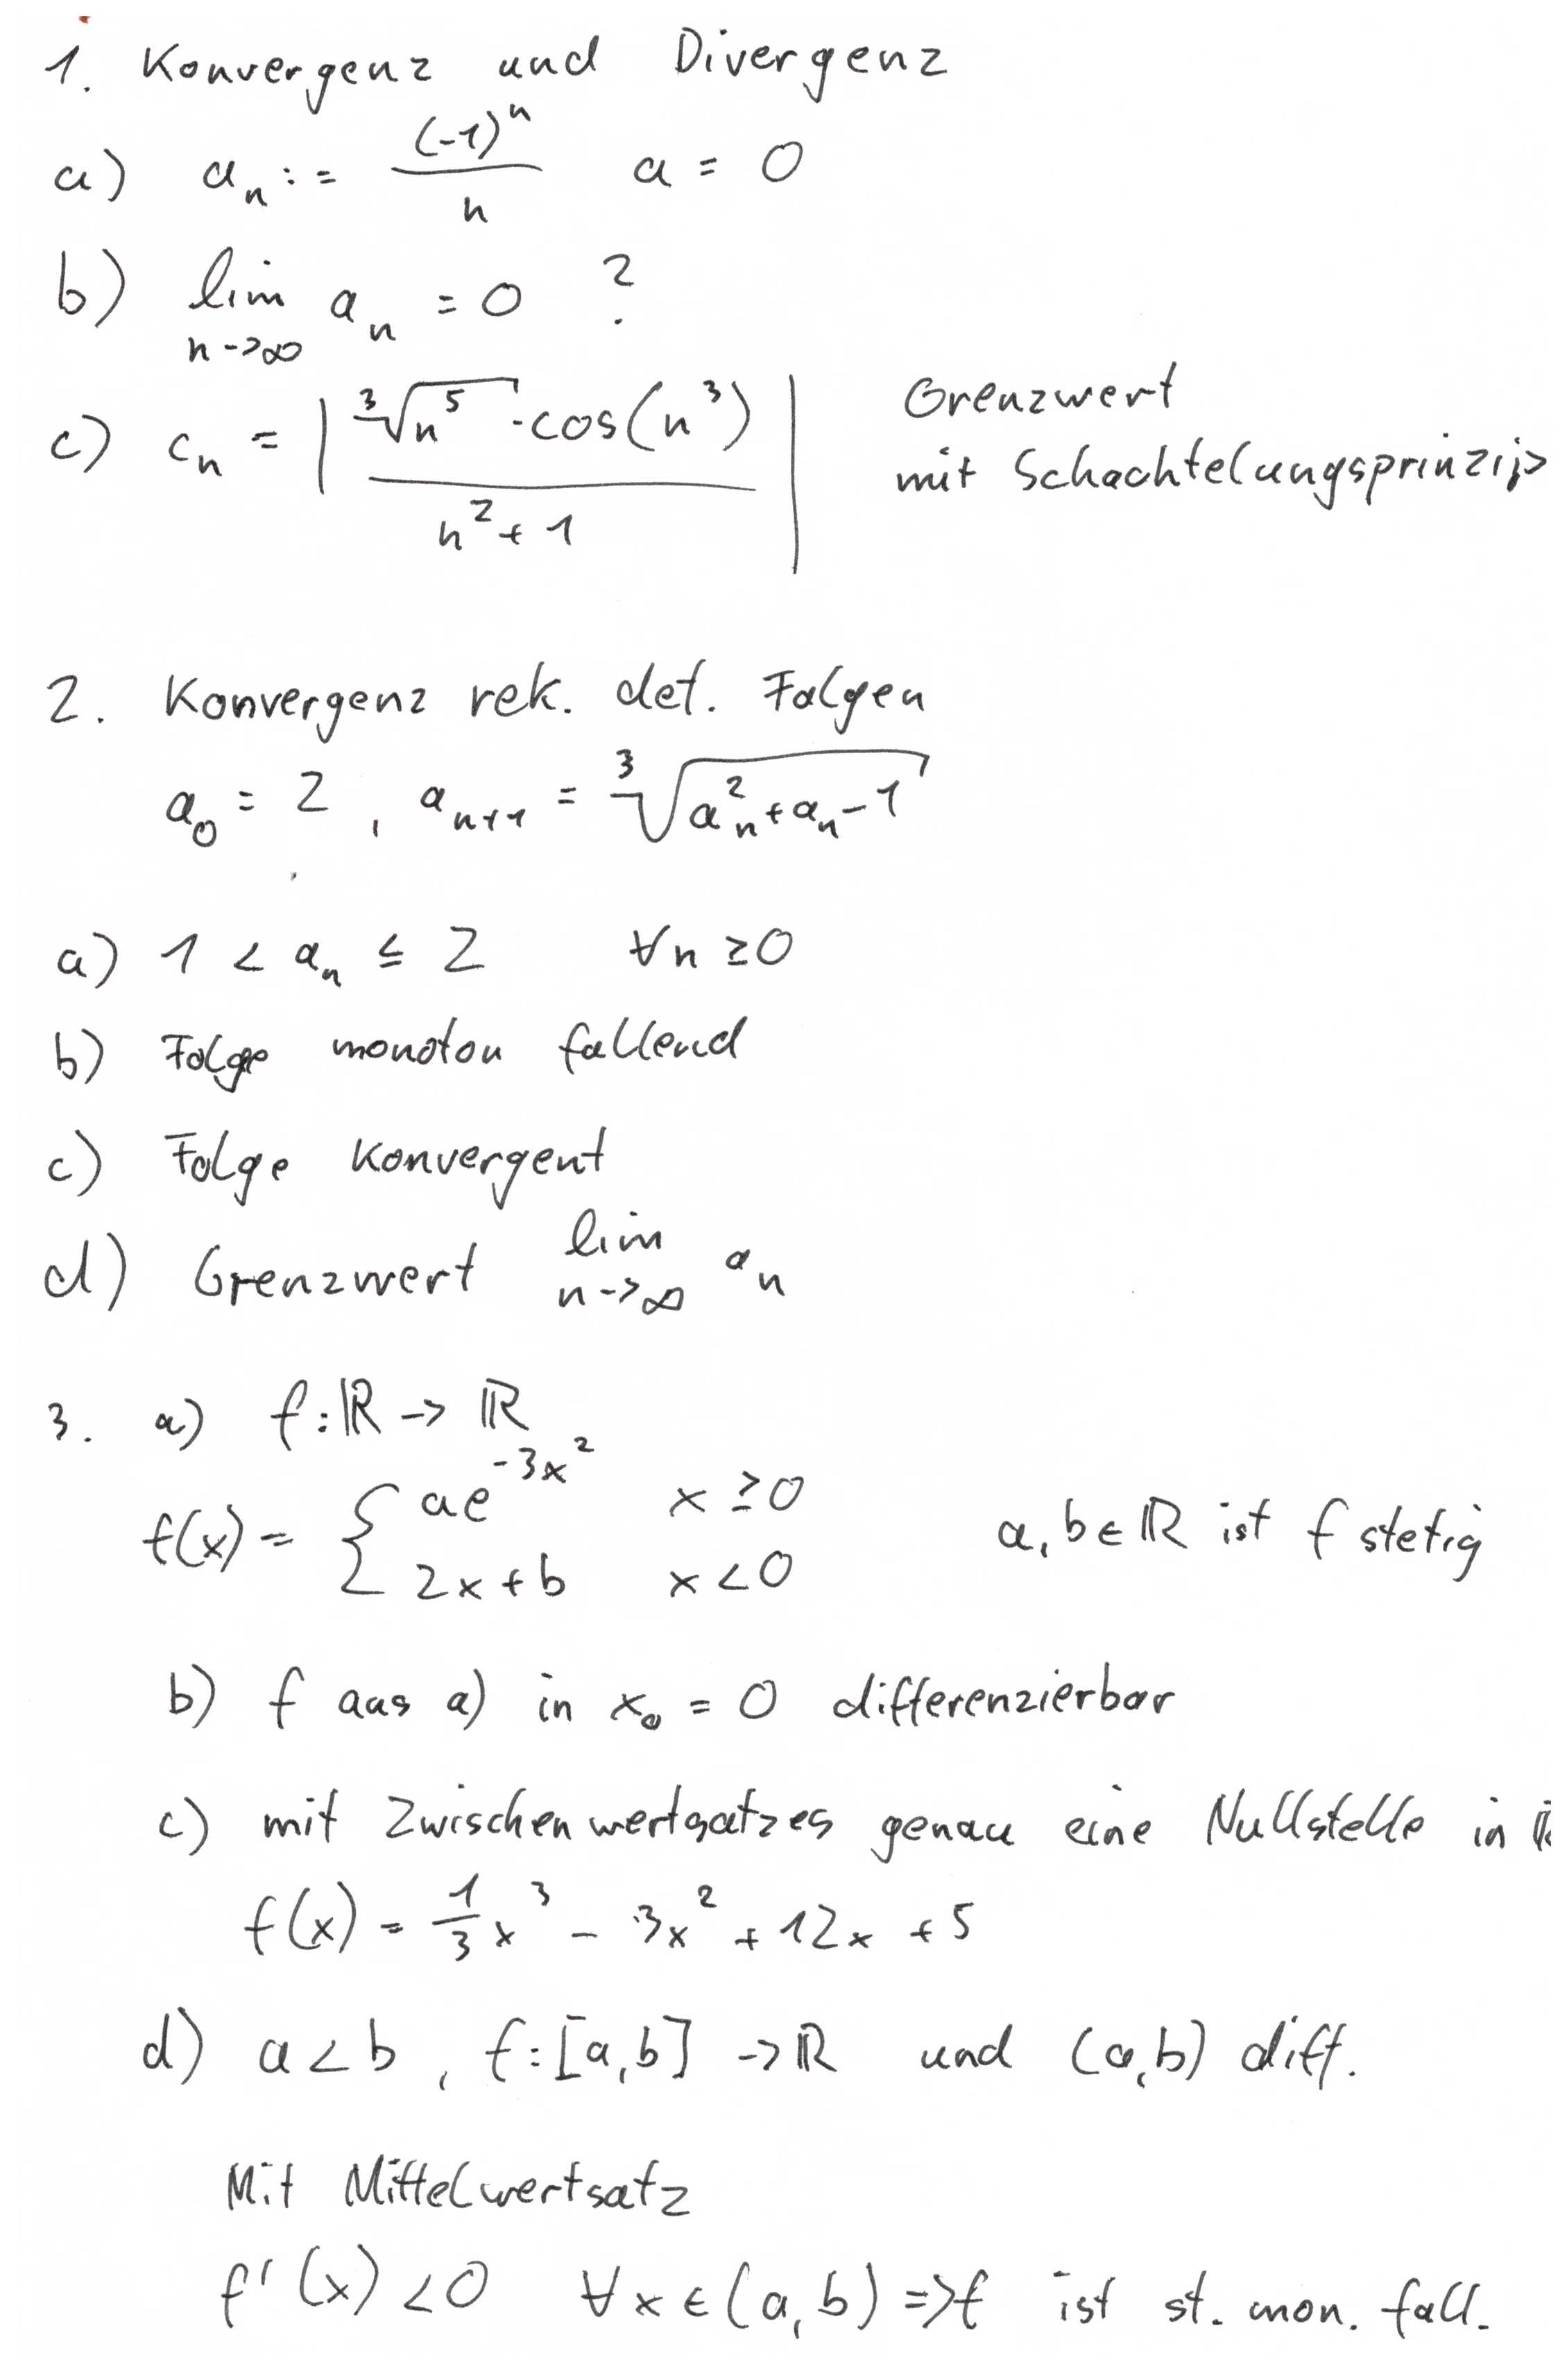 1. Konvergenz und Divergenz
a) aₙ := (-1)ⁿ / n   a = 0
b) lim n->∞ aₙ = 0 ?
c) cₙ = | ∛(n⁵) · cos(n³) / (n² + 1) |   Grenzwert mit Schachtelungsprinzip
2. Konvergenz rek. def. Folgen
a₀ = 2 , aₙ₊₁ = ∛(aₙ² + aₙ - 1)
a) 1 < aₙ ≤ 2   ∀n ≥ 0
b) Folge monoton fallend
c) Folge konvergent
d) Grenzwert lim n->∞ aₙ
3. a) f: ℝ -> ℝ
f(x) = { ae^(-3x²)   x ≥ 0
2x + b   x < 0   a, b ∈ ℝ ist f stetig
b) f aus a) in x₀ = 0 differenzierbar
c) mit Zwischenwertsatzes genau eine Nullstelle in ℝ
f(x) = 1/3 x³ - 3x² + 12x + 5
d) a < b , f: [a, b] -> ℝ und (a, b) diff.
Mit Mittelwertsatz
f'(x) < 0   ∀x ∈ (a, b) => f ist st. mon. fall.